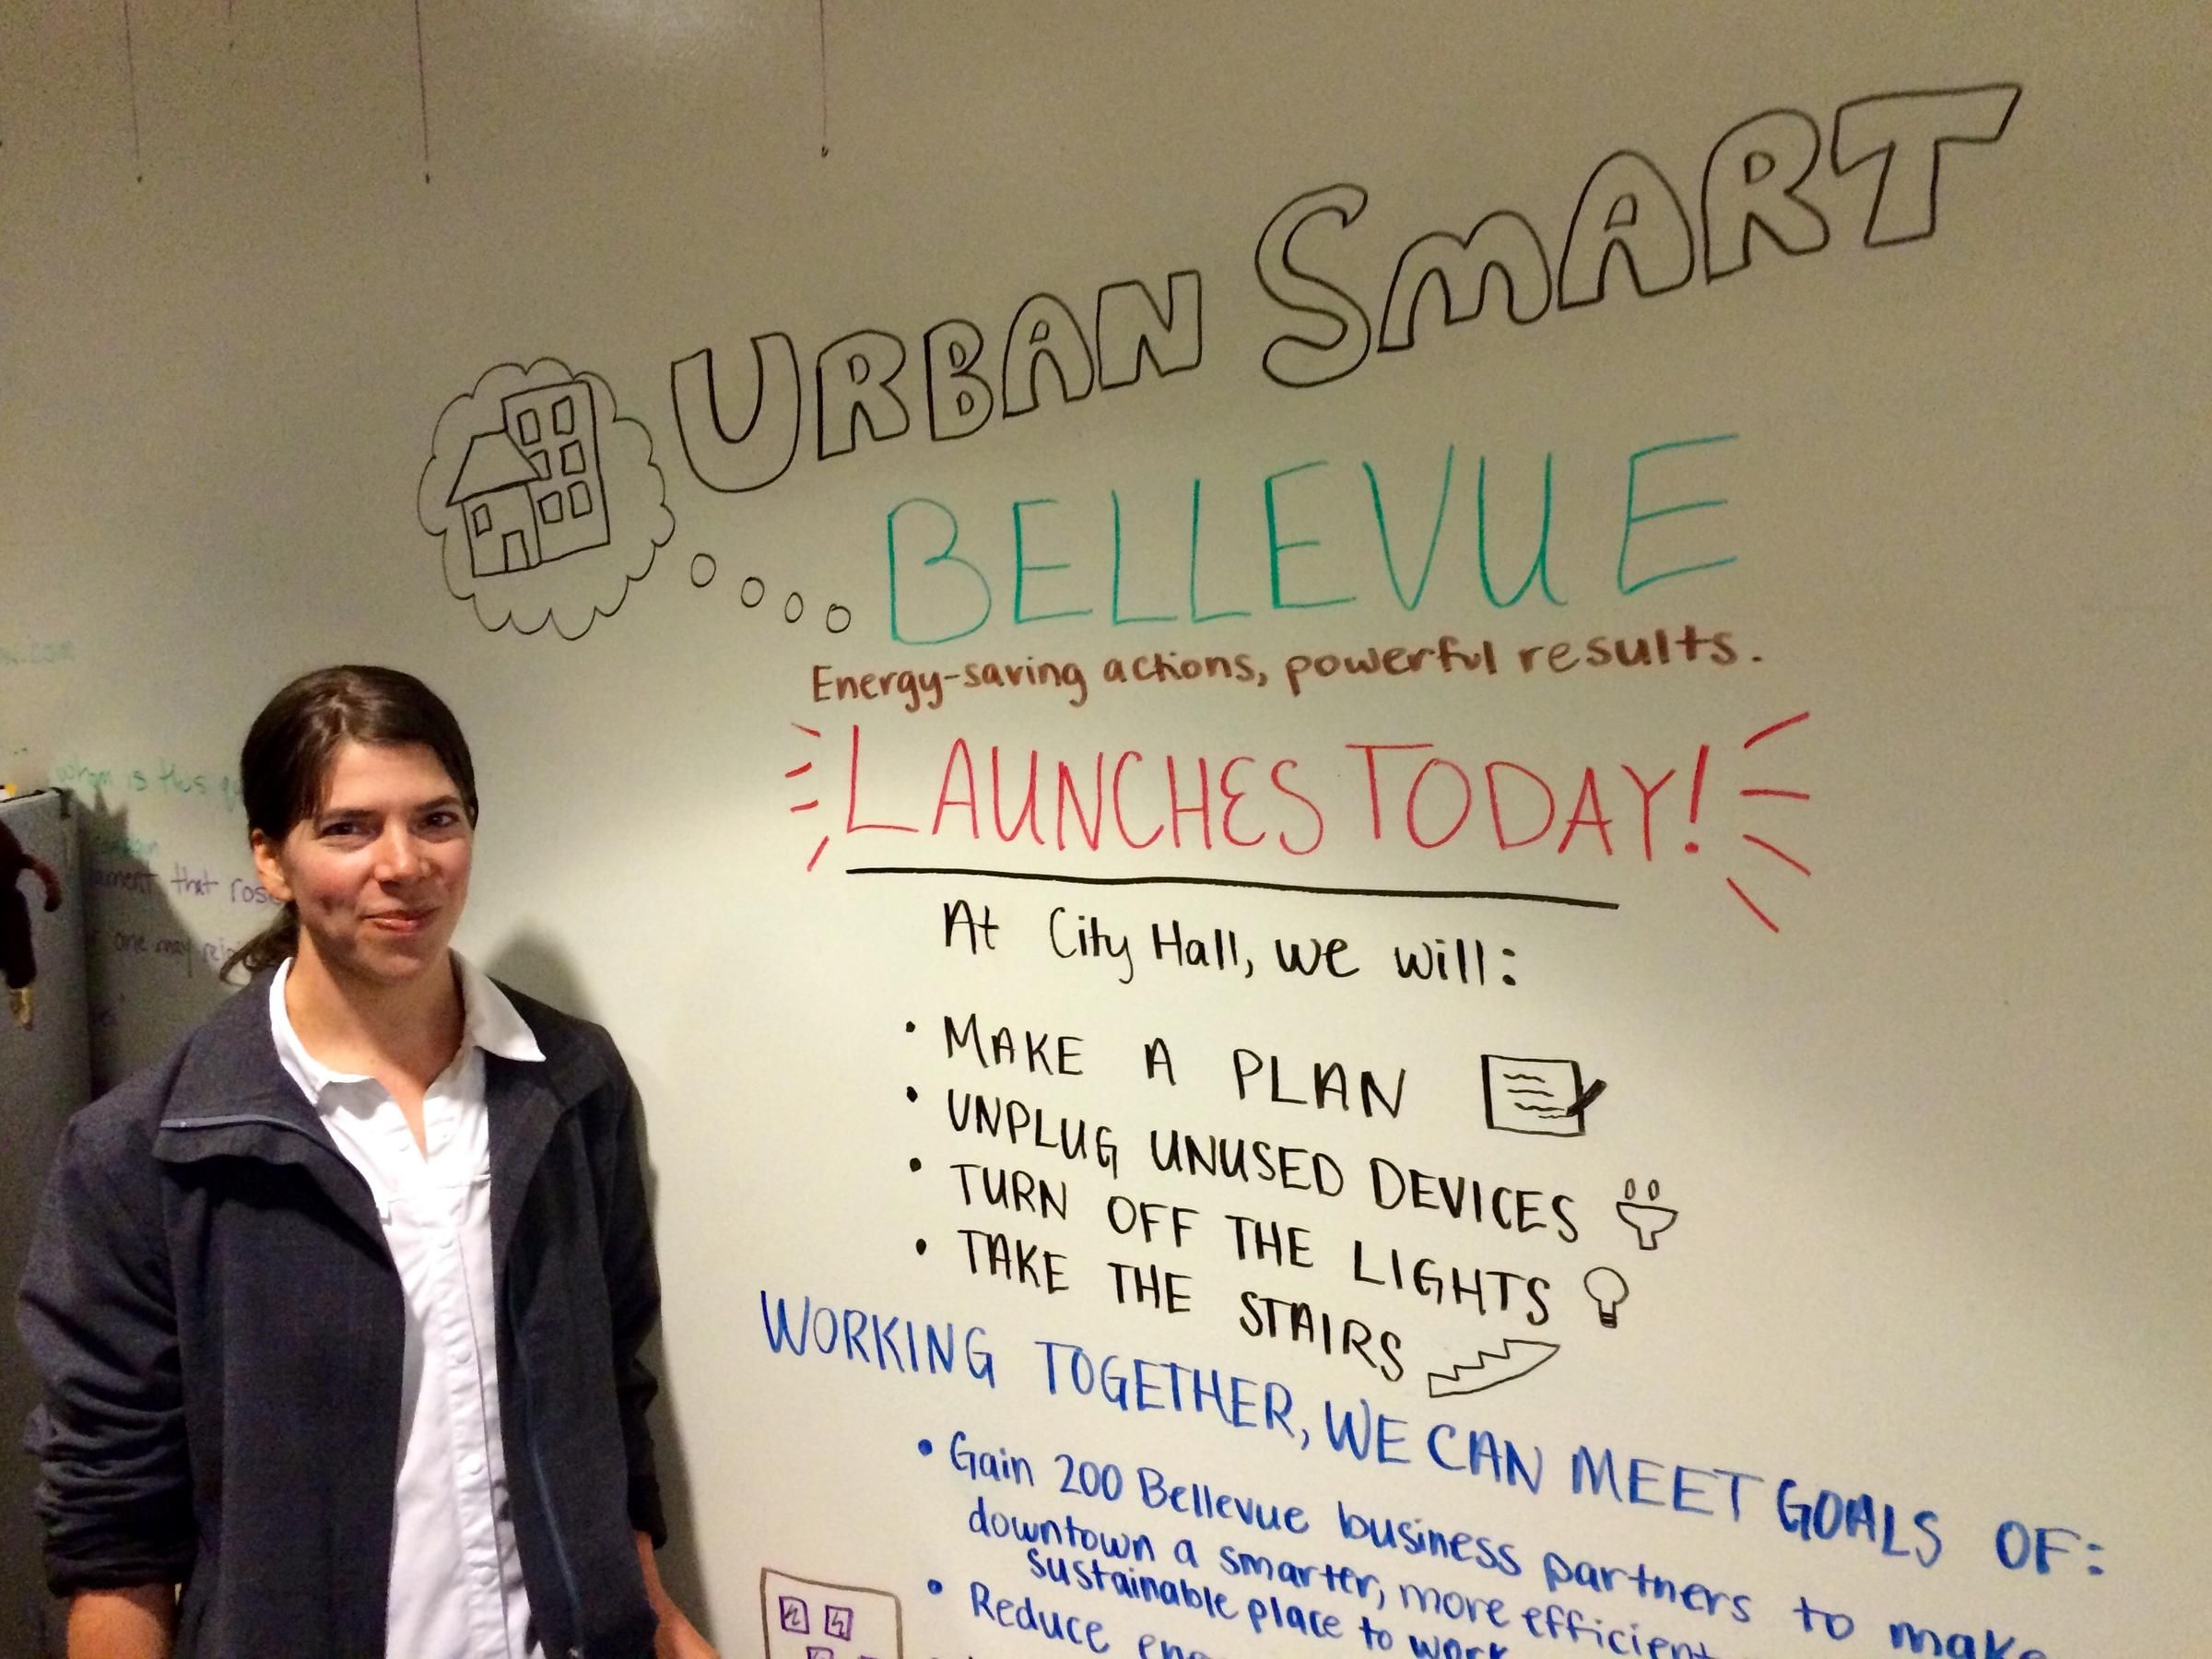 URBAN SMART
BELLEVUE
Energy-saving actions, powerful results.
LAUNCHES TODAY!
At City Hall, we will:
• MAKE A PLAN
• UNPLUG UNUSED DEVICES
• TURN OFF THE LIGHTS
• TAKE THE STAIRS
WORKING TOGETHER, WE CAN MEET GOALS OF:
• Gain 200 Bellevue business partners to make
downtown a smarter, more efficient
sustainable place to work
• Reduce
whom is this
that
one may